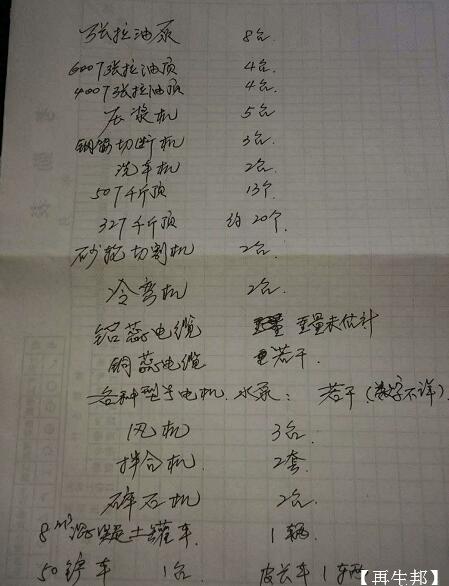 张拉油泵 8台
600T张拉油顶 4台
400T张拉油顶 4台
压浆机 5台
钢筋切断机 3台
洗车机 2台
50T千斤顶 13个
32T千斤顶 约20个
砂轮切割机 2台
冷弯机 2台
铝蕊电缆 重量未估计
铜蕊电缆 若干
各种型号电机、水泵: 若干(数字不详)
风机 3台
拌合机 2套
碎石机 2台
8m³混凝土罐车 1辆
50铲车 1台 皮长车 1辆
【再生邦】